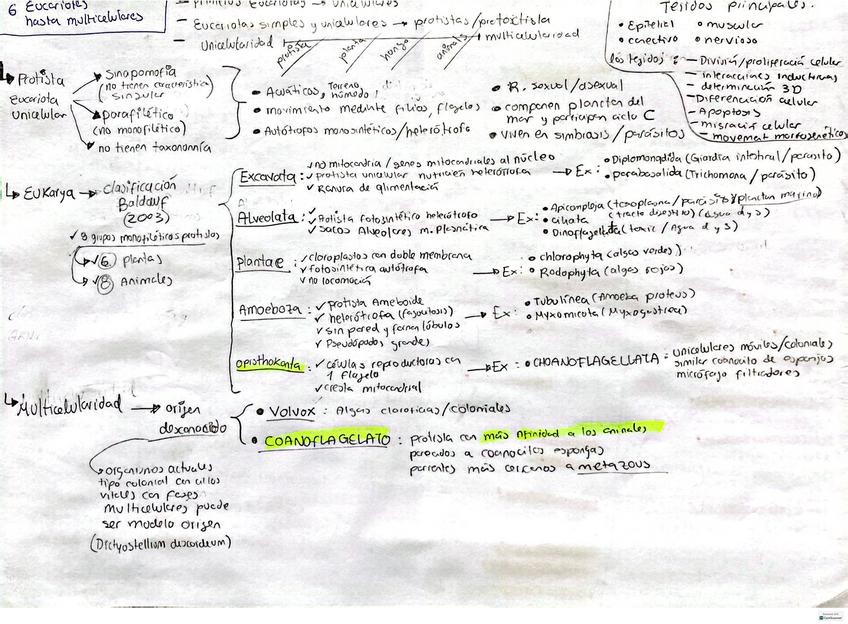 6 Eucariotes
hasta multicelulares
— primeros Eucariotas → unicelulares
— Eucariotas simples y unicelulares → protistas/protoctista
Unicelularidad multicelularidad
protista planta hongo animal
Tejidos principales:
• Epitelial • muscular
• conectivo • nervioso
los tejidos: — División/proliferación celular
— interacciones inductivas
— determinación 3D
— Diferenciación celular
— Apoptosis
— migración celular
— movement morfogenéticos
Protista
Eucariota
unicelular
Sinopomofia
(no tienen característica
singular
parafilético
(no monofilético)
no tienen taxonomía
• Acuáticos, Terreno
húmedo
• movimiento mediante filios, flagelos
• Autótrofos monosintéticos/heterótrofo
• R. sexual/asexual
• componen plancton del
mar y participan ciclo C
• viven en simbiosis/parásitos
Eukarya → Clasificación
Baldauf
(2003)
✓ 8 grupos monofiléticos protistas
✓ 6 plantas
✓ 8 Animales
Excavata: ✓ no mitocondria/genes mitocondriales al núcleo
✓ protista unicelular nutrición heterótrofa
✓ Ranura de alimentación
→ Ex: • Diplomonadida (Giardia intestinal/parasito)
• parabasalida (Trichomona/parásito)
Alveolata: ✓ Protista fotosintético heterótrofo
✓ sacos Alveolares m. Plasmática
→ Ex: • Apicompleja (toxoplasma/parásito)/plancton marino)
• ciliata (tracto digestivo) (Agua d y s)
• Dinoflagellata (toxic/Agua d y s)
Plantae: ✓ cloroplastos con doble membrana
✓ fotosintética autótrofa
✓ no locomoción
→ Ex: • chlorophyta (algas verdes)
• Rodophyta (algas rojas)
Amoeboza: ✓ Protista Ameboide
✓ heterótrofa (fagocitosis)
✓ sin pared y forman lóbulos
✓ Pseudópodos grandes
→ Ex: • Tubulínea (Amoeba proteus)
• Myxomicota (Myxogastrea)
opisthokonta: ✓ células reproductoras con
1 flagelo
✓ cresta mitocondrial
→ Ex: • CHOANOFLAGELLATA: unicelulares móviles/coloniales
similar coanocito de esponjas
micrófago filtradores
Multicelularidad → origen
desconocido
• Volvox: Algas clorofícias/coloniales
• COANOFLAGELATO: protista con más afinidad a los animales
parecidos a coanocitos esponjas
parientes más cercanos a metazous
organismos actuales
tipo colonial con ciclos
vitales con fases
multicelulares puede
ser modelo origen
(Dictyostellium descoideum)
CamScanner